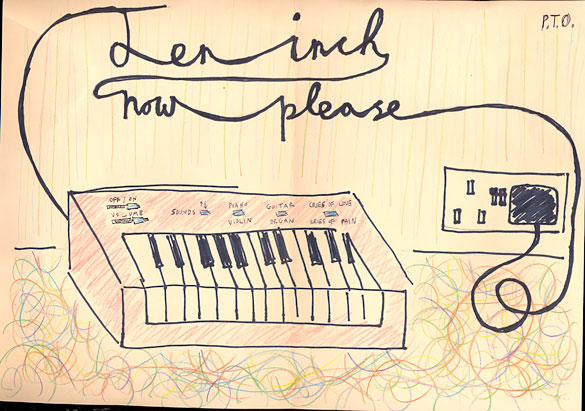 P.T.O.
Ten inch
now please
OFF / ON
VOLUME
SOUNDS
PIANO
VIOLIN
GUITAR
ORGAN
CRIES OF LOVE
CRIES OF PAIN